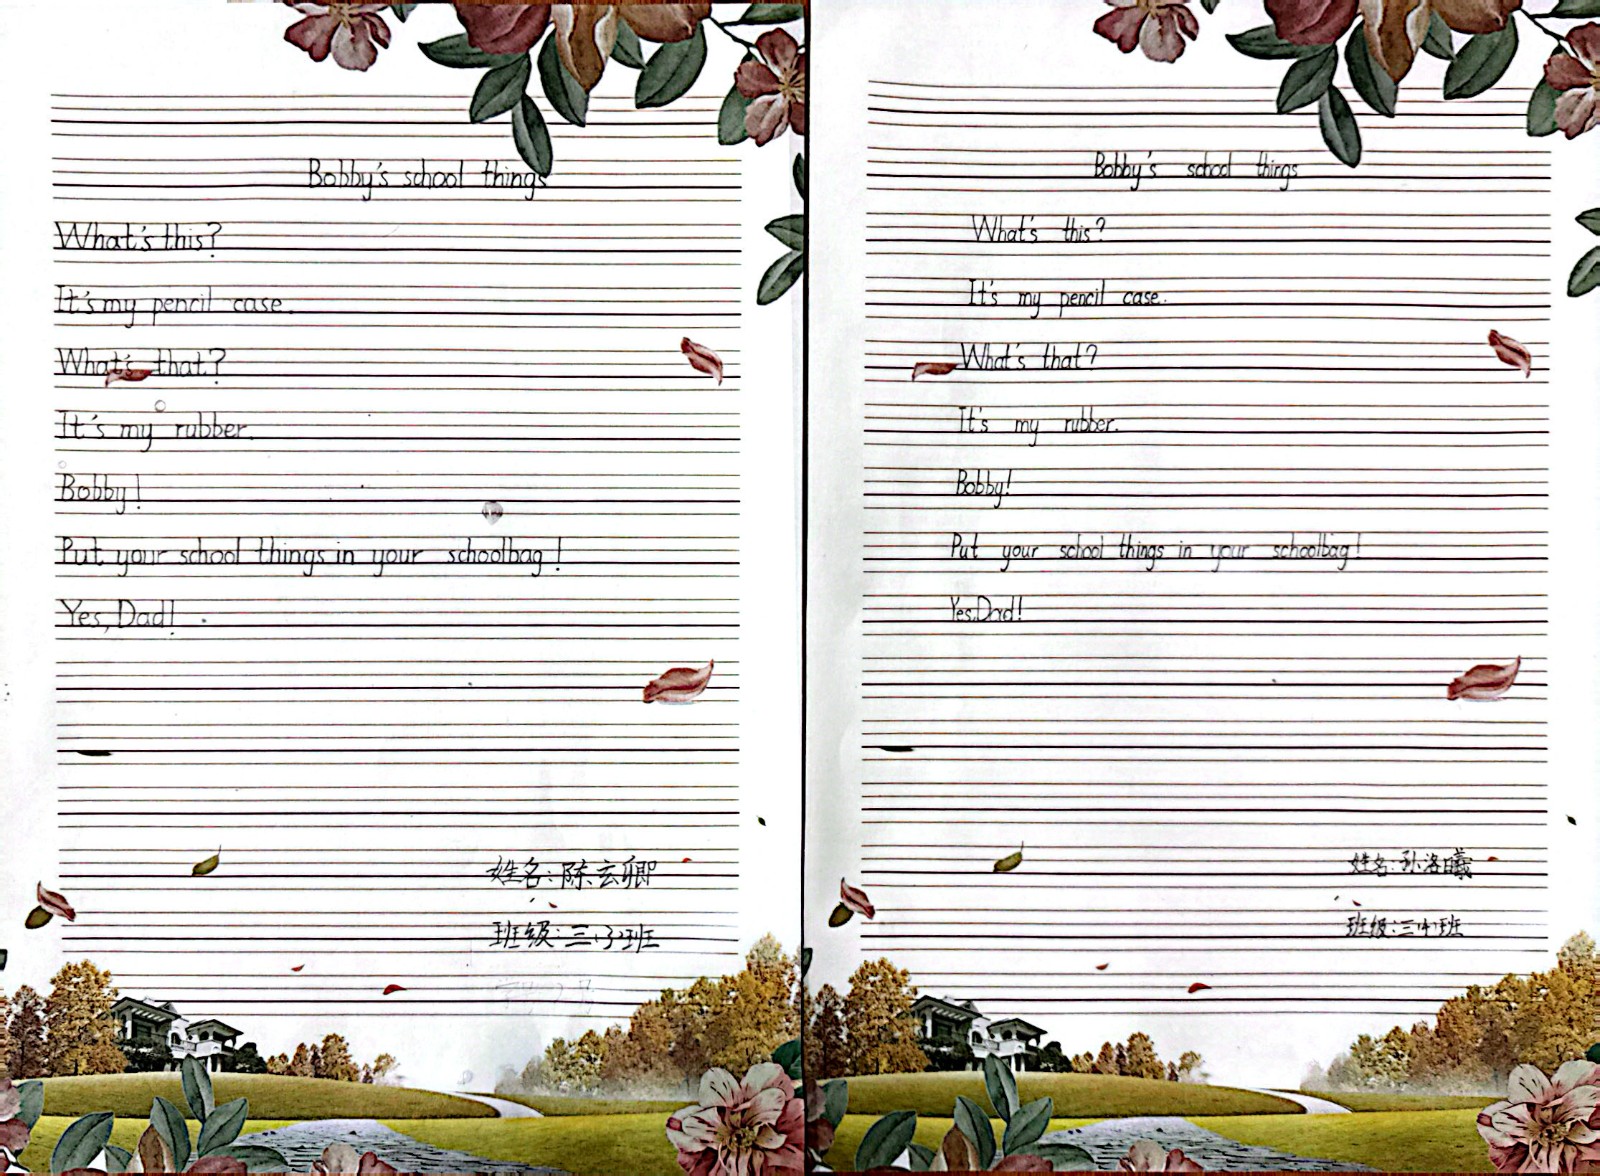 Bobby's school things
What's this?
It's my pencil case.
What's that?
It's my rubber.
Bobby!
Put your school things in your schoolbag!
Yes, Dad!
姓名:陈玄卿
班级:三(3)班
Bobby's school things
What's this?
It's my pencil case.
What's that?
It's my rubber.
Bobby!
Put your school things in your schoolbag!
Yes,Dad!
姓名:孙洛曦
班级:三(4)班